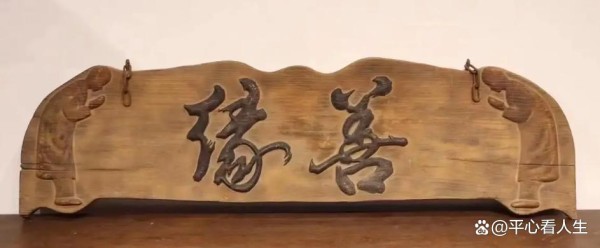 善緣
@平心看人生